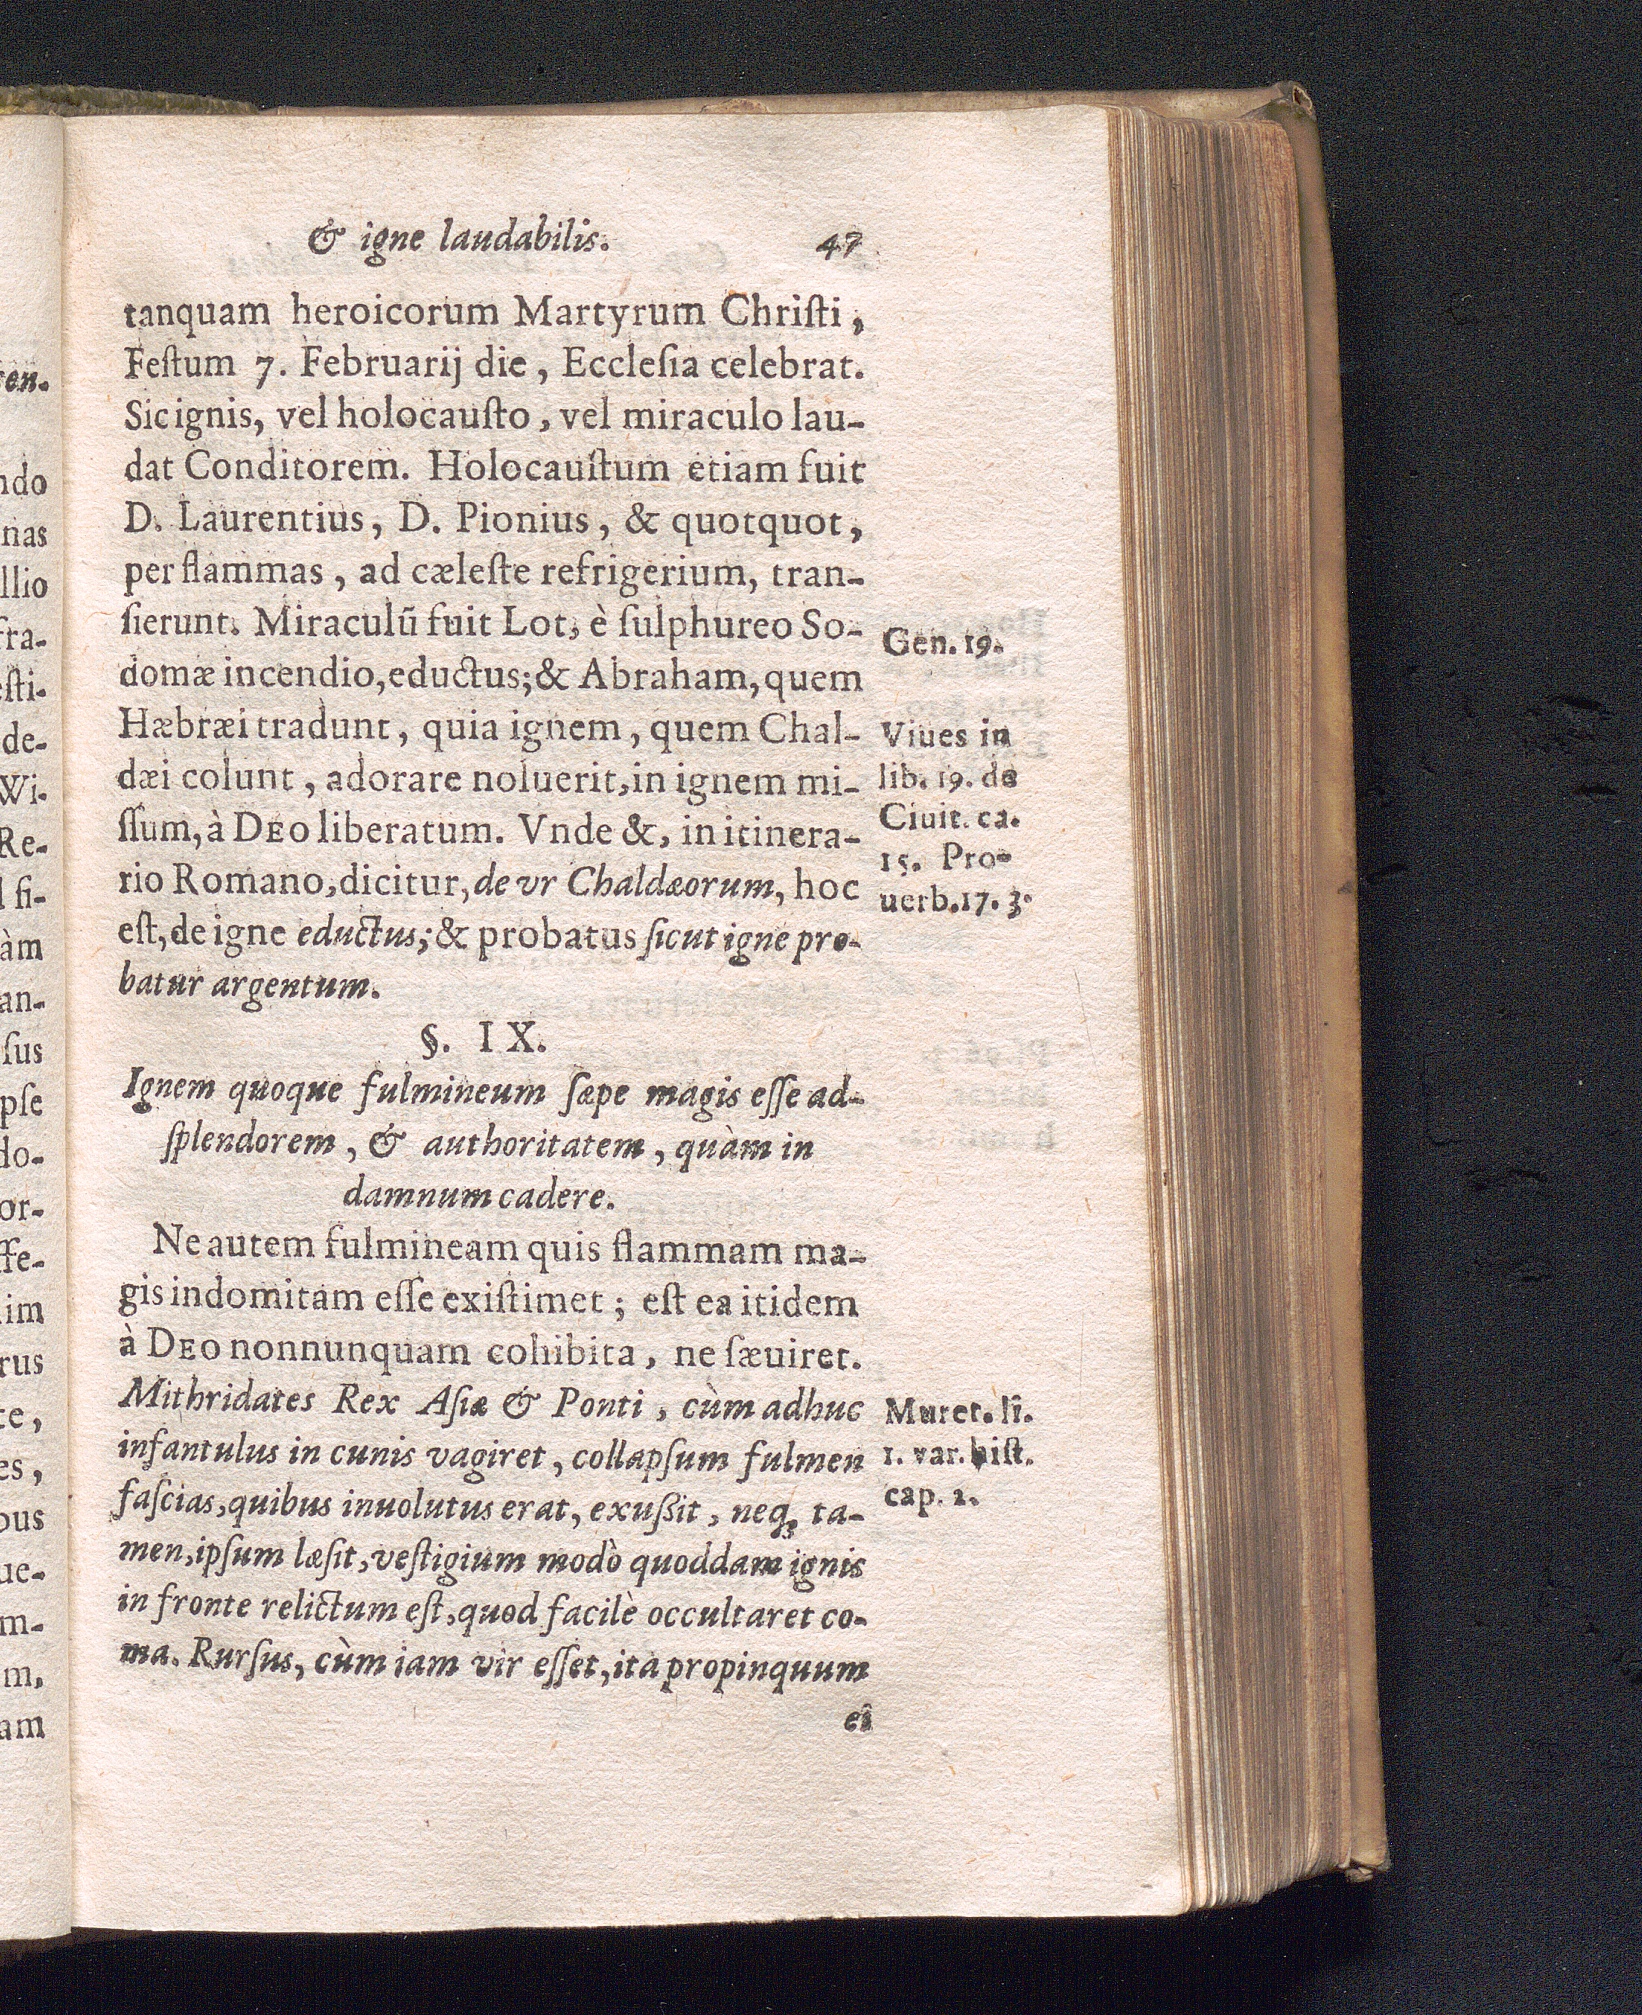 & igne laudabilis. 47
tanquam heroicorum Martyrum Chriſti,
Feſtum 7. Februarij die, Eccleſia celebrat.
Sic ignis, vel holocauſto, vel miraculo lau-
dat Conditorem. Holocauſtum etiam fuit
D. Laurentius, D. Pionius, & quotquot,
per flammas, ad cæleſte refrigerium, tran-
ſierunt. Miraculũ fuit Lot, è ſulphureo So-
domæ incendio, eductus; & Abraham, quem
Hæbræi tradunt, quia ignem, quem Chal-
dæi colunt, adorare noluerit, in ignem mi-
ſſum, à DEO liberatum. Vnde &, in itinera-
rio Romano, dicitur, de vr Chaldæorum, hoc
eſt, de igne eductus; & probatus ſicut igne pro-
batur argentum.
Gen. 19.
Viues in
lib. 19. de
Ciuit. ca.
15. Pro-
uerb. 17. 3.
§. IX.
Ignem quoque fulmineum ſæpe magis eſſe ad-
ſplendorem, & authoritatem, quàm in
damnum cadere.
Ne autem fulmineam quis flammam ma-
gis indomitam eſſe exiſtimet; eſt ea itidem
à DEO nonnunquam cohibita, ne ſæuiret.
Mithridates Rex Aſiæ & Ponti, cùm adhuc
infantulus in cunis vagiret, collapſum fulmen
faſcias, quibus inuolutus erat, exußit, neq; ta-
men, ipſum læſit, veſtigium modò quoddam ignis
in fronte relictum eſt, quod facilè occultaret co-
ma. Rurſus, cùm iam vir eſſet, ita propinquum
Muret. lî.
1. var. hiſt.
cap. 2.
eî
ten.
ndo
nas
llio
fra-
eſti-
de-
Wi-
Re-
ſi-
àm
an-
ſus
pſe
do-
or-
ffe-
im
rus
te,
es,
ous
ue-
m-
m,
am